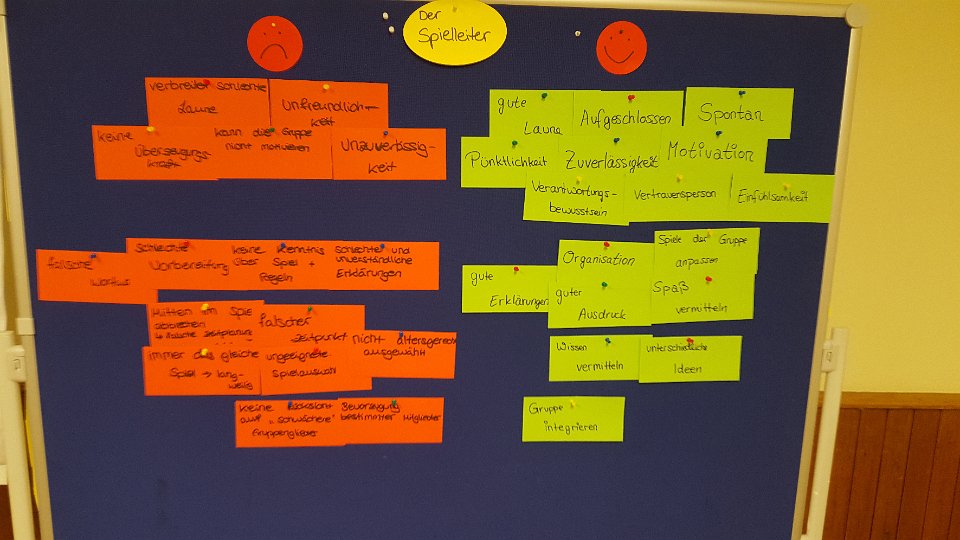 Der
Spielleiter
verbreitet schlechte
Laune
Unfreundlich-
keit
keine
Überzeugungs
kraft
kann die Gruppe
nicht motivieren
Unzuverlässig-
keit
falsche
Schlechte
Vorbereitung
keine Kenntnis
über Spiel +
Regeln
schlechte und
unverständliche
Erklärungen
Mitten im Spiel
abbrechen
falsche Zeitplanung
falscher
Zeitpunkt
nicht altersgerecht
ausgewählt
immer das gleiche
Spiel → lang-
weilig
ungeeignete
Spielauswahl
keine
auf "schwächere"
Gruppenglieder
Bevorzugung
bestimmter Mitglieder
gute
Laune
Aufgeschlossen
Spontan
Pünktlichkeit
Zuverlässigkeit
Motivation
Verantwortungs-
bewusstsein
Vertrauensperson
Einfühlsamkeit
gute
Erklärungen
Organisation
Spiele der Gruppe
anpassen
guter
Ausdruck
Spaß
vermitteln
Wissen
vermitteln
unterschiedliche
Ideen
Gruppe
integrieren